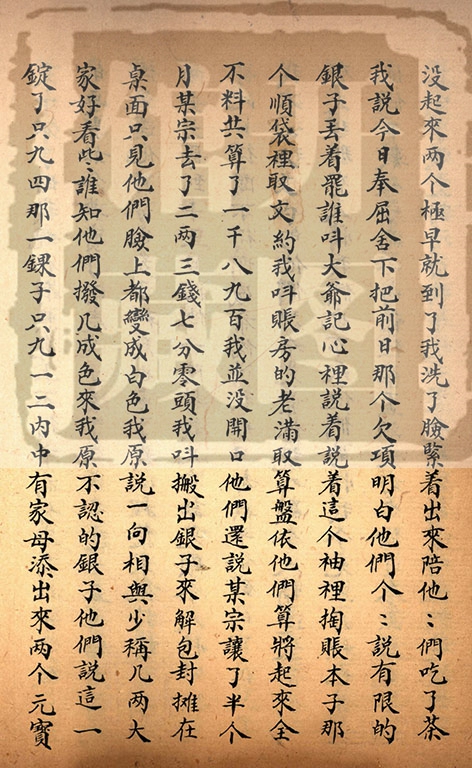 没起來两个極早就到了我洗了臉緊着出來陪他〻們吃了茶
我説今日奉屈舍下把前日那个欠項明白他們个〻説有限的
銀子丟着罷誰呌大爺記心裡説着説着這个袖裡掏賬本子那
个順袋裡取文約我呌賬房的老滿取算盤依他們算將起來全
不料共算了一千八九百我並没開口他們還説某宗讓了半个
月某宗去了二两三錢七分零頭我呌搬出銀子來解包封攤在
桌面只見他們臉上都變成白色我原説一向相與少稱几两大
家好看些〻誰知他們撥几成色來我原不認的銀子他們説這一
錠了只九四那一錁子只九一二内中有家母添出來两个元寳